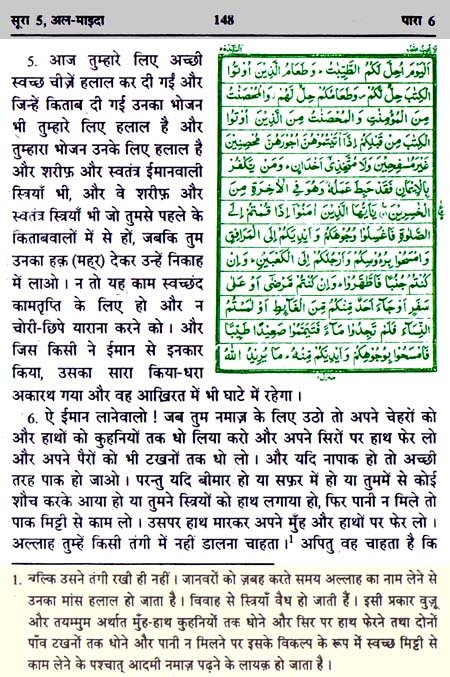 सूरा 5, अल-माइदा 148 पारा 6
5. आज तुम्हारे लिए अच्छी
स्वच्छ चीज़ें हलाल कर दी गईं और
जिन्हें किताब दी गई उनका भोजन
भी तुम्हारे लिए हलाल है और
तुम्हारा भोजन उनके लिए हलाल है
और शरीफ़ और स्वतंत्र ईमानवाली
स्त्रियाँ भी, और वे शरीफ़ और
स्वतंत्र स्त्रियाँ भी जो तुमसे पहले के
किताबवालों में से हों, जबकि तुम
उनका हक़ (मह्र) देकर उन्हें निकाह
में लाओ । न तो यह काम स्वच्छंद
कामतृप्ति के लिए हो और न
चोरी-छिपे याराना करने को । और
जिस किसी ने ईमान से इनकार
किया, उसका सारा किया-धरा
अकारथ गया और वह आख़िरत में भी घाटे में रहेगा ।
اَلْيَوْمَ اُحِلَّ لَكُمُ الطَّيِّبٰتُ ۚ وَطَعَامُ الَّذِيْنَ اُوْتُوا
الْكِتٰبَ حِلٌّ لَّكُمْ ۪ وَطَعَامُكُمْ حِلٌّ لَّهُمْ ۡ وَالْمُحْصَنٰتُ
مِنَ الْمُؤْمِنٰتِ وَالْمُحْصَنٰتُ مِنَ الَّذِيْنَ اُوْتُوا
الْكِتٰبَ مِنْ قَبْلِكُمْ اِذَآ اٰتَيْتُمُوْهُنَّ اُجُوْرَهُنَّ مُحْصِنِيْنَ
غَيْرَ مُسٰفِحِيْنَ وَلَا مُتَّخِذِيْٓ اَخْدَانٍ ۗ وَمَنْ يَّكْفُرْ
بِالْاِيْمَانِ فَقَدْ حَبِطَ عَمَلُهٗ ۡ وَهُوَ فِي الْاٰخِرَةِ مِنَ
الْخٰسِرِيْنَ ۝ يٰٓاَيُّهَا الَّذِيْنَ اٰمَنُوْٓا اِذَا قُمْتُمْ اِلَى
الصَّلٰوةِ فَاغْسِلُوْا وُجُوْهَكُمْ وَاَيْدِيَكُمْ اِلَى الْمَرَافِقِ
وَامْسَحُوْا بِرُءُوْسِكُمْ وَاَرْجُلَكُمْ اِلَى الْكَعْبَيْنِ ۗ وَاِنْ
كُنْتُمْ جُنُبًا فَاطَّهَّرُوْا ۗ وَاِنْ كُنْتُمْ مَّرْضٰٓى اَوْ عَلٰى
سَفَرٍ اَوْ جَآءَ اَحَدٌ مِّنْكُمْ مِّنَ الْغَآئِطِ اَوْ لٰمَسْتُمُ
النِّسَآءَ فَلَمْ تَجِدُوْا مَآءً فَتَيَمَّمُوْا صَعِيْدًا طَيِّبًا
فَامْسَحُوْا بِوُجُوْهِكُمْ وَاَيْدِيْكُمْ مِّنْهُ ۗ مَا يُرِيْدُ اللّٰهُ
6. ऐ ईमान लानेवालो ! जब तुम नमाज़ के लिए उठो तो अपने चेहरों को
और हाथों को कुहनियों तक धो लिया करो और अपने सिरों पर हाथ फेर लो
और अपने पैरों को भी टखनों तक धो लो । और यदि नापाक हो तो अच्छी
तरह पाक हो जाओ । परन्तु यदि बीमार हो या सफ़र में हो या तुममें से कोई
शौच करके आया हो या तुमने स्त्रियों को हाथ लगाया हो, फिर पानी न मिले तो
पाक मिट्टी से काम लो । उसपर हाथ मारकर अपने मुँह और हाथों पर फेर लो ।
अल्लाह तुम्हें किसी तंगी में नहीं डालना चाहता ।1 अपितु वह चाहता है कि
1. बल्कि उसने तंगी रखी ही नहीं । जानवरों को ज़बह करते समय अल्लाह का नाम लेने से
उनका मांस हलाल हो जाता है । विवाह से स्त्रियाँ वैध हो जाती हैं । इसी प्रकार वुज़ू
और तयम्मुम अर्थात मुँह-हाथ कुहनियों तक धोने और सिर पर हाथ फेरने तथा दोनों
पाँव टखनों तक धोने और पानी न मिलने पर इसके विकल्प के रूप में स्वच्छ मिट्टी से
काम लेने के पश्चात् आदमी नमाज़ पढ़ने के लायक़ हो जाता है ।